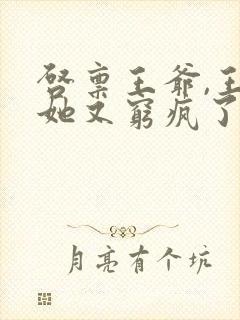 启禀王爷,王
她又窮疯了
月亮有个坑